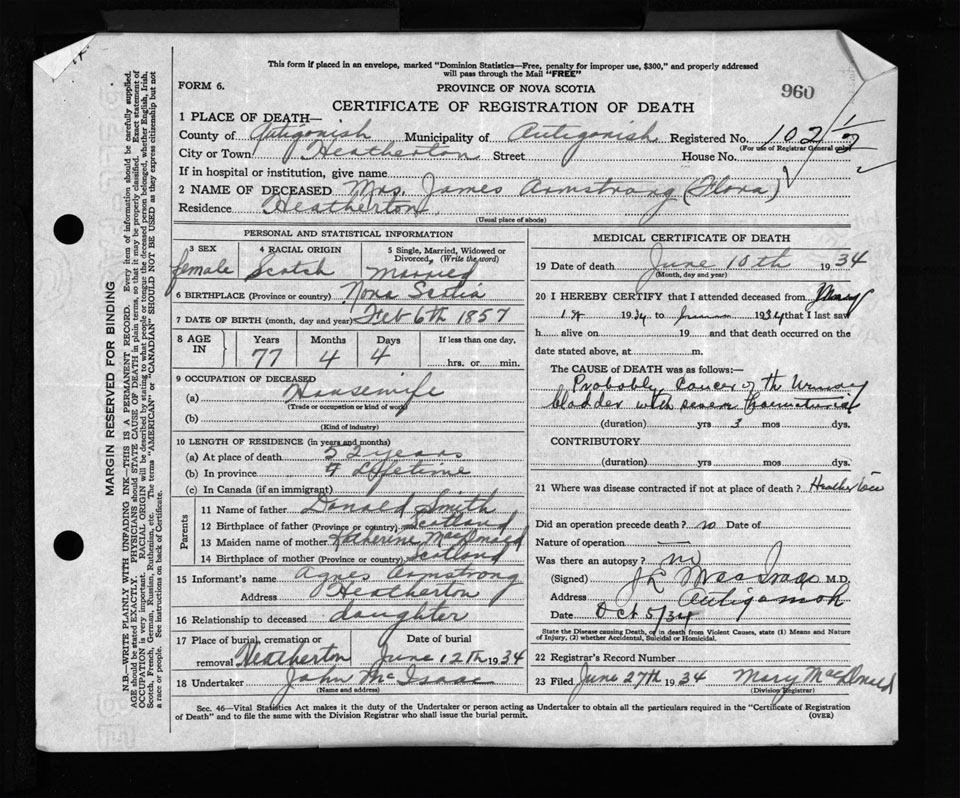 This form if placed in an envelope, marked "Dominion Statistics—Free, penalty for improper use, $300," and properly addressed
will pass through the Mail "FREE"
FORM 6.
PROVINCE OF NOVA SCOTIA
960
CERTIFICATE OF REGISTRATION OF DEATH
1 PLACE OF DEATH—
County of Antigonish Municipality of Antigonish Registered No. 102 1/2
(For use of Registrar General only)
City or Town Heatherton Street House No.
If in hospital or institution, give name
2 NAME OF DECEASED Mrs. James Armstrong (Flora)
Residence Heatherton
(Usual place of abode)
PERSONAL AND STATISTICAL INFORMATION
3 SEX 4 RACIAL ORIGIN 5 Single, Married, Widowed or Divorced, (Write the word)
female Scotch Married
6 BIRTHPLACE (Province or country) Nova Scotia
7 DATE OF BIRTH (month, day and year) Feb 6th 1857
8 AGE IN Years Months Days If less than one day,
77 4 4 hrs. or min.
9 OCCUPATION OF DECEASED
(a) Housewife
(Trade or occupation or kind of work)
(b)
(Kind of industry)
10 LENGTH OF RESIDENCE (in years and months)
(a) At place of death 52 years
(b) In province Lifetime
(c) In Canada (if an immigrant)
Parents
11 Name of father Donald Smith
12 Birthplace of father (Province or country) Scotland
13 Maiden name of mother Katherine MacDonald
14 Birthplace of mother (Province or country) Scotland
15 Informant's name Agnes Armstrong
Address Heatherton
16 Relationship to deceased daughter
17 Place of burial, cremation or removal Heatherton Date of burial June 12th 1934
18 Undertaker John McIsaac
(Name and address)
MEDICAL CERTIFICATE OF DEATH
19 Date of death June 10th 1934
(Month, day and year)
20 I HEREBY CERTIFY that I attended deceased from
1st 1934 to 1934 that I last saw
h alive on 19 and that death occurred on the
date stated above, at m.
The CAUSE of DEATH was as follows:—
Probably Cancer of the Urinary
bladder with severe haematuria
(duration) yrs 3 mos dys.
CONTRIBUTORY
(duration) yrs mos dys.
21 Where was disease contracted if not at place of death? Heatherton
Did an operation precede death? no Date of
Nature of operation —
Was there an autopsy? no
(Signed) J L MacIsaac M.D.
Address Antigonish
Date Oct 5/34
State the Disease causing Death, or in death from Violent Causes, state (1) Means and Nature of Injury, (2) whether Accidental, Suicidal or Homicidal.
22 Registrar's Record Number
23 Filed June 27th 1934 Mary MacDonald
(Division Registrar)
Sec. 46—Vital Statistics Act makes it the duty of the Undertaker or person acting as Undertaker to obtain all the particulars required in the "Certificate of Registration
of Death" and to file the same with the Division Registrar who shall issue the burial permit.
(OVER)
MARGIN RESERVED FOR BINDING
N.B.—WRITE PLAINLY WITH UNFADING INK—THIS IS A PERMANENT RECORD. Every item of information should be carefully supplied.
AGE should be stated EXACTLY. PHYSICIANS should STATE CAUSE OF DEATH in plain terms, so that it may be properly classified. Exact statement of
OCCUPATION is very important. RACIAL ORIGIN will be described by stating to what people or tongue the deceased person belonged, whether English, Irish,
Scotch, French, German, Russian, Ruthenian, etc. The terms "AMERICAN" or "CANADIAN" SHOULD NOT BE USED as they express citizenship but not
a race or people. See instructions on back of Certificate.